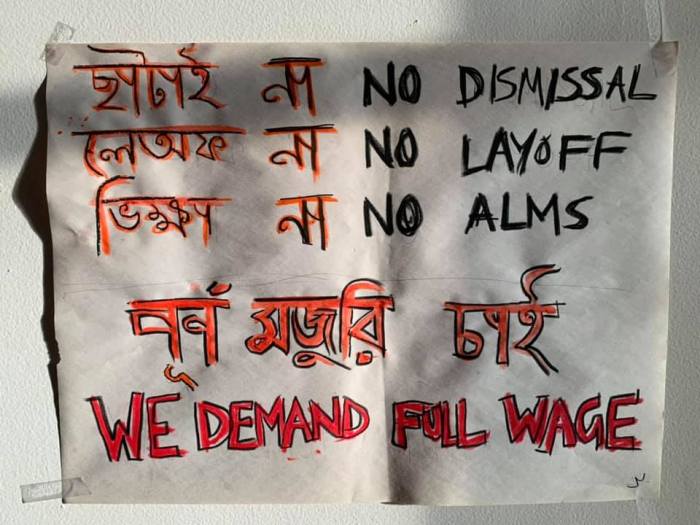 ছাঁটাই না NO DISMISSAL
লেঅফ না NO LAYOFF
ভিক্ষা না NO ALMS
পূর্ন মজুরি চাই
WE DEMAND FULL WAGE